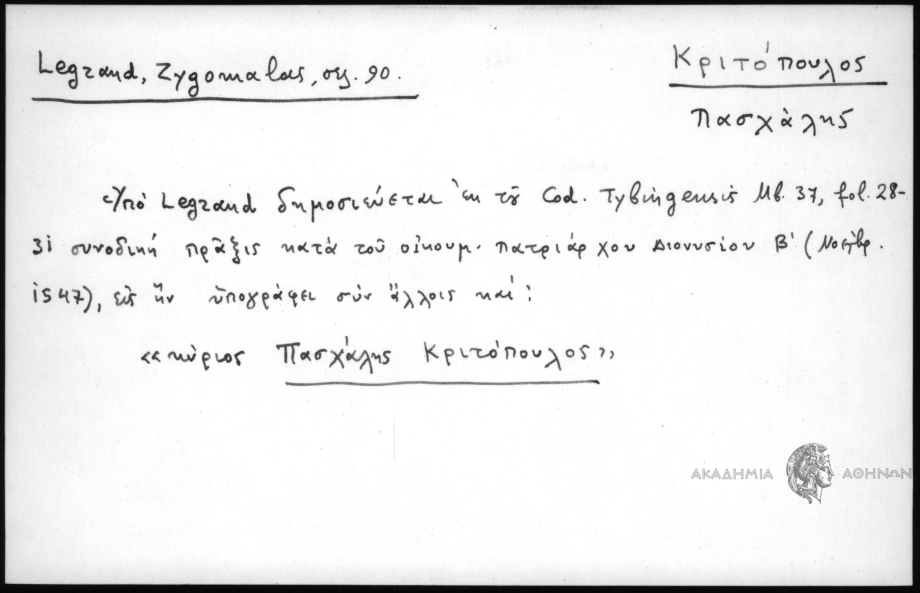 Legrand, Zygomalas, σελ. 90.
Κριτόπουλος
Πασχάλης
Ὑπὸ Legrand δημοσιεύεται ἐκ τοῦ Cod. Tybingensis Mb. 37, fol. 28-
31 συνοδικὴ πρᾶξις κατὰ τοῦ οἰκουμ. πατριάρχου Διονυσίου Β' (Νοέμβρ.
1547), εἰς ἣν ὑπογράφει σὺν ἄλλοις καί:
«κύριος Πασχάλης Κριτόπουλος»
ΑΚΑΔΗΜΙΑ ΑΘΗΝΩΝ